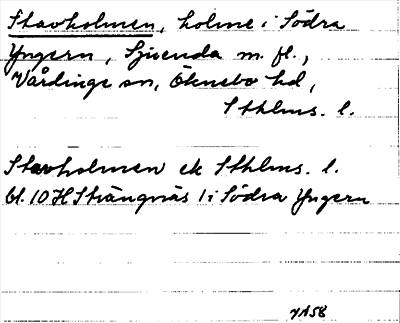 Stavholmen, holme i Södra
Yngern, Sjuenda m. fl.,
Vårdinge sn, Öknebo hd,
Sthlms. l.
Stavholmen ek Sthlms. l.
bl. 10 H Strängnäs 1 i Södra Yngern